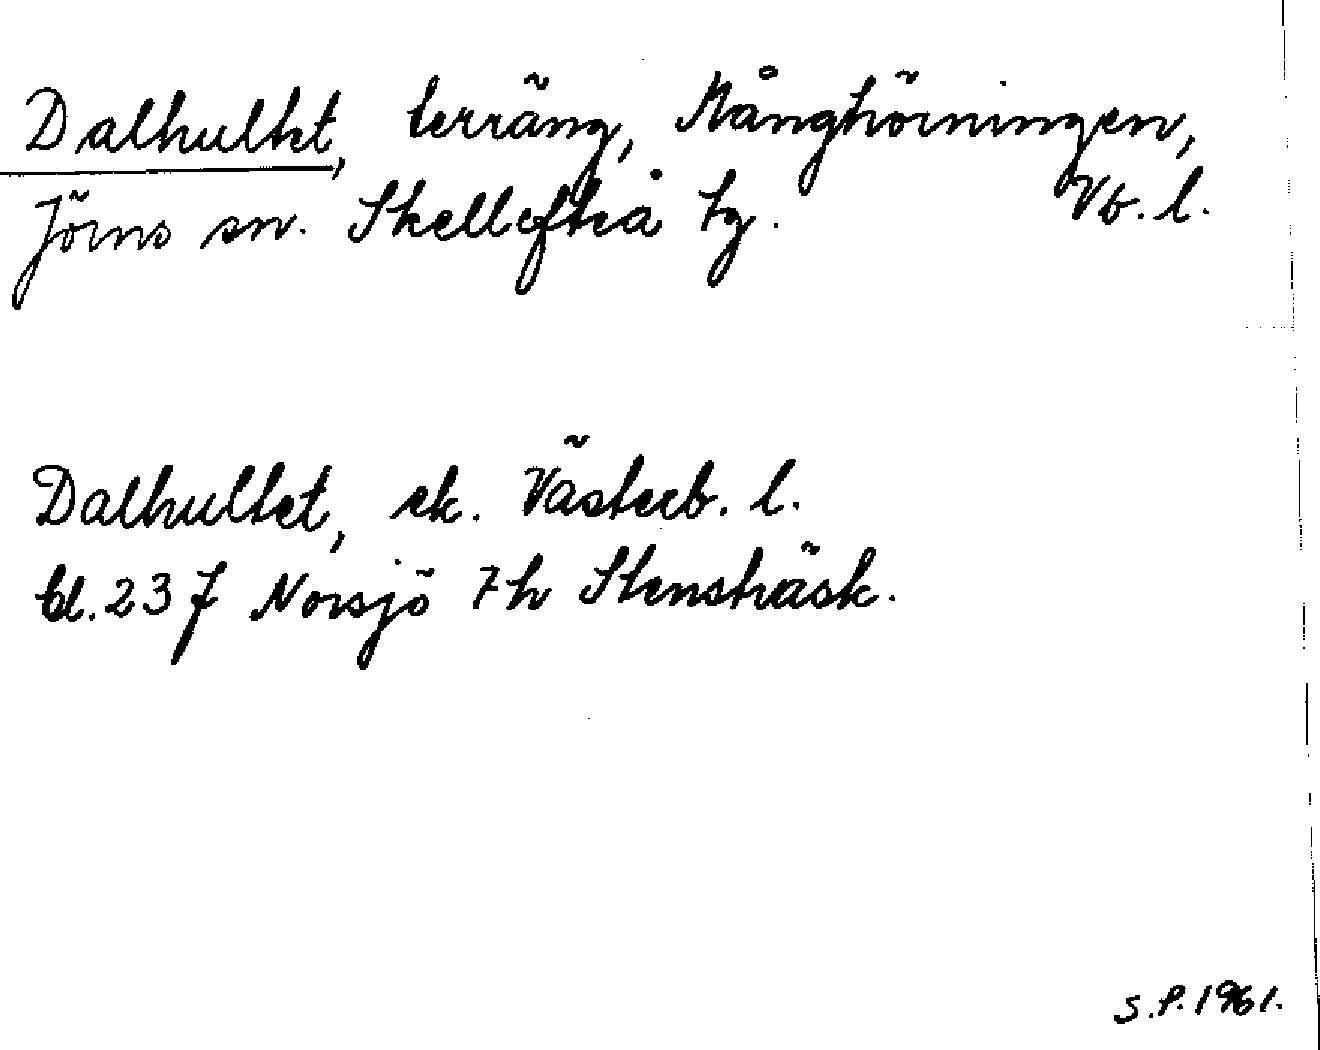 Dalhultet, terräng, Månghörningen,
Jörns sn. Skellefteå tg. Vb. l.
Dalhultet, ek. Västerb. l.
bl. 23 J Norsjö 7h Stensträsk.
S.P. 1961.